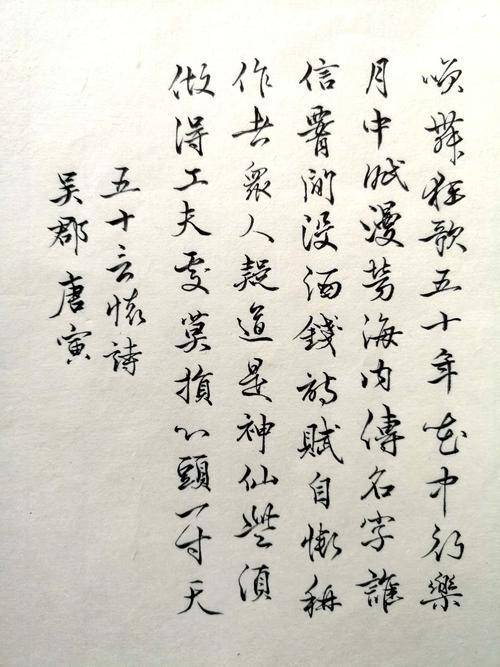 咲舞狂歌五十年花中行樂
月中眠漫勞海内傳名字誰
信腰間沒酒錢詩賦自慚稱
作者衆人疑道是神仙些須
做得工夫處莫損心頭一寸天
五十言懷詩
吳郡唐寅